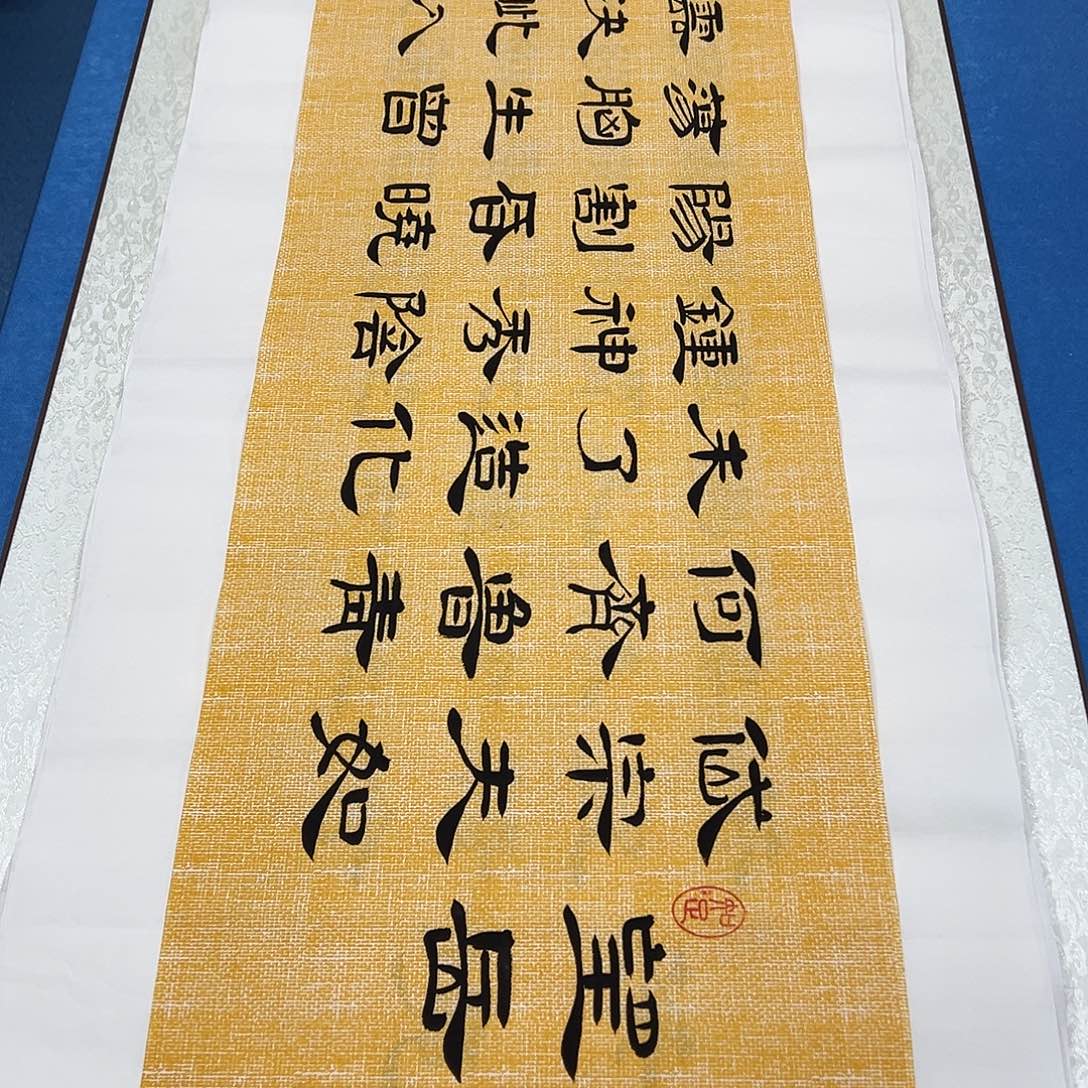 望岳
岱宗夫如
何齊魯青
未了造化
鍾神秀陰
陽割昏曉
蕩胸生曾
雲決眥入